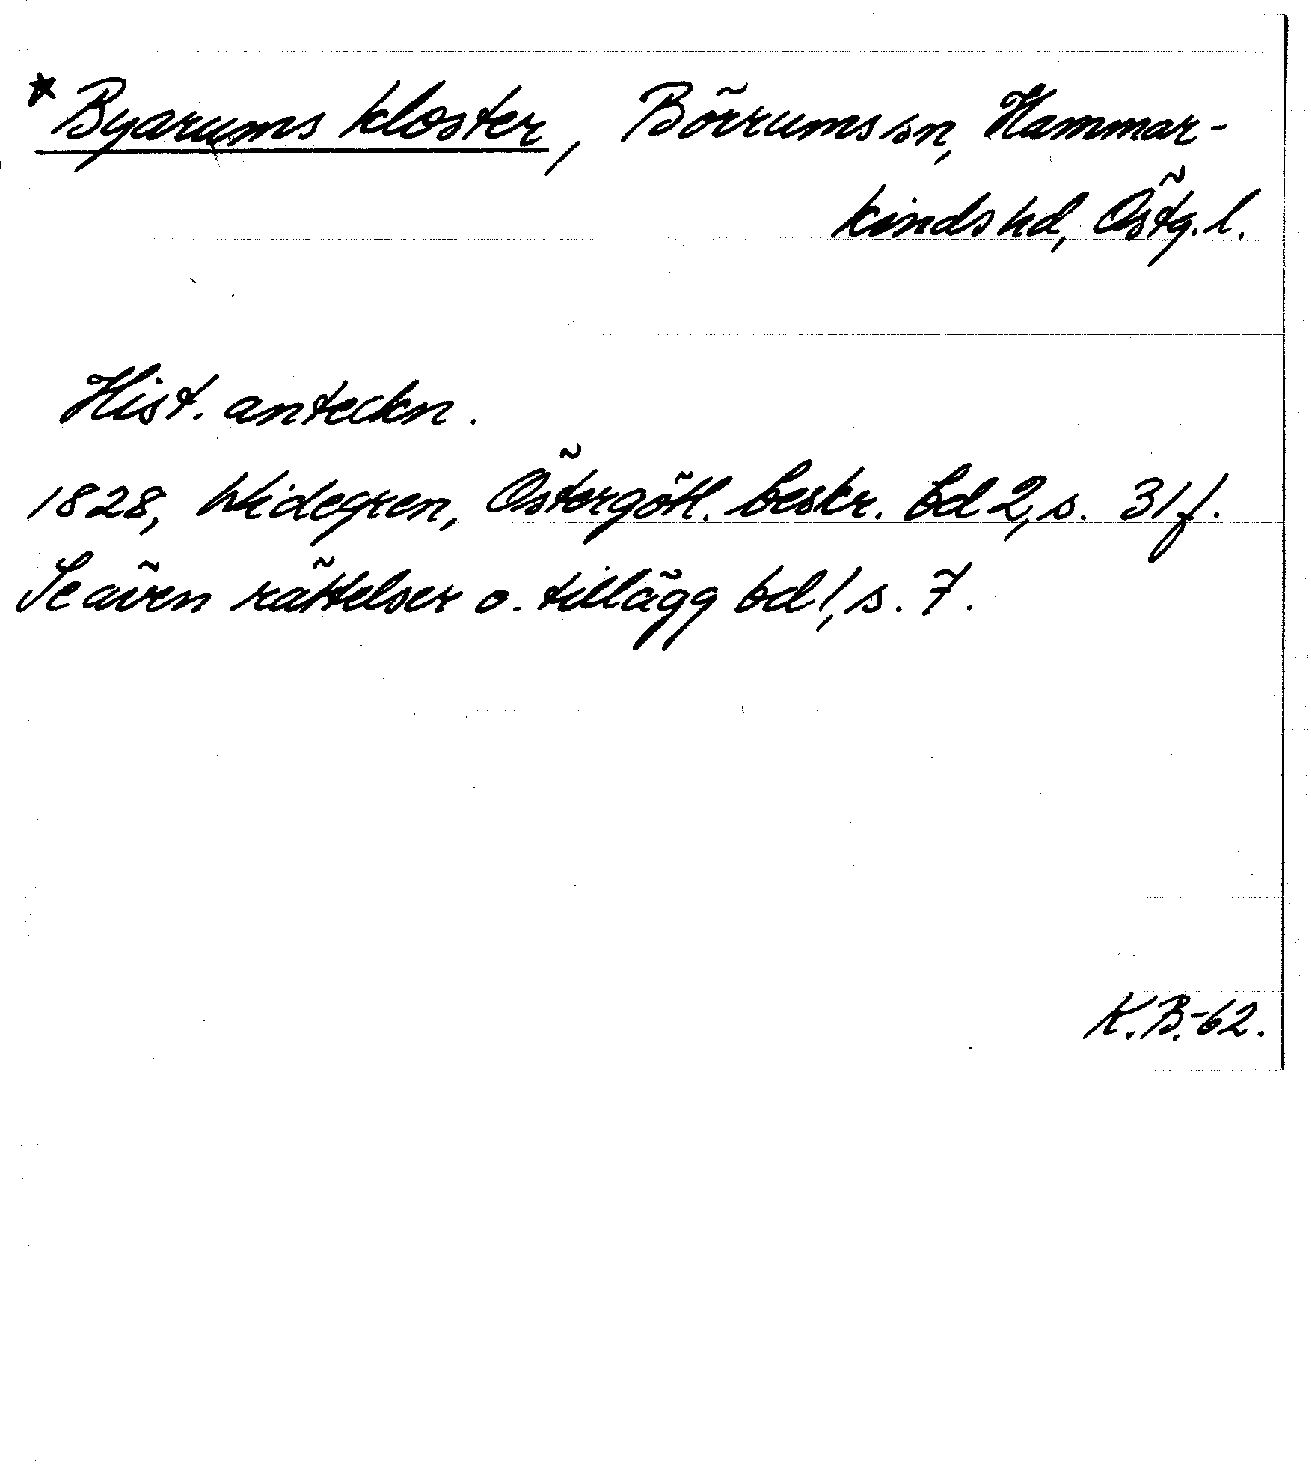 *Byarums kloster, Börrums sn, Hammar-
kinds hd, Östg. l.
Hist. anteckn.
1828, Widegren, Östergötl. beskr. bd 2, s. 31 f.
Se även rättelser o. tillägg bd 1, s. 7.
K.B.-62.